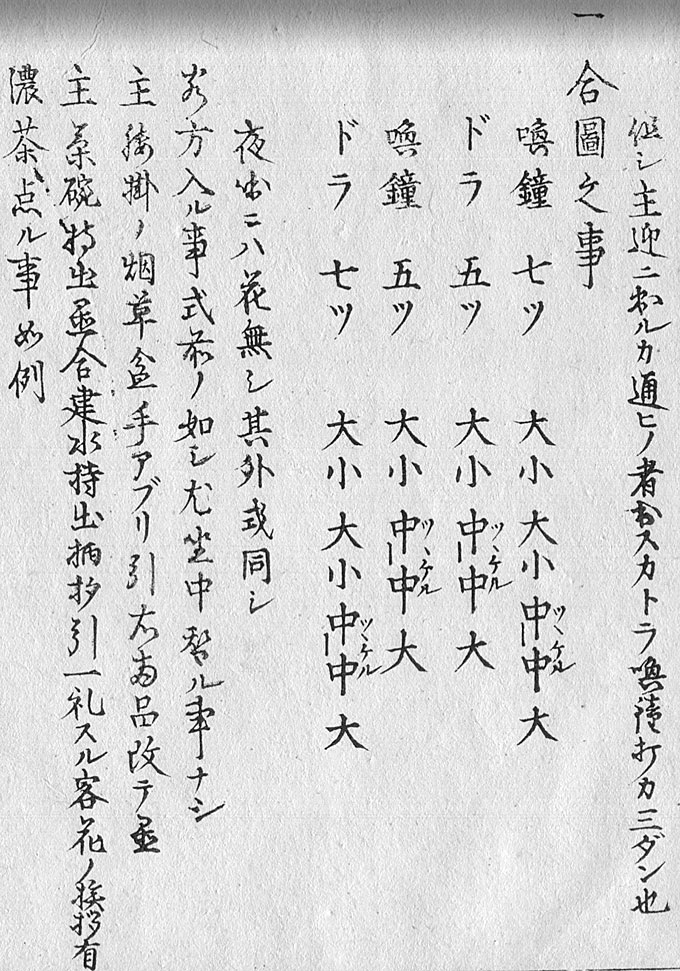 但シ主迎ニ出ルカ通ヒノ者出スカトラ喚鐘打カ三ダン也
一 合圖之事
喚鐘 七ツ 大小大小中中大 ツヽケル
ドラ 五ツ 大小中中大 ツヽケル
喚鐘 五ツ 大小中中大 ツヽケル
ドラ 七ツ 大小大小中中大 ツヽケル
夜出ニハ花無シ其外式同シ
客方入ル事式前ノ如シ尤坐中ルル事ナシ
主腰掛ノ烟草盆手アブリ引右両品改テ置
主茶碗持出置合建水持出柄杓引一礼スル客花ノ挨拶有
濃茶点ル事如例